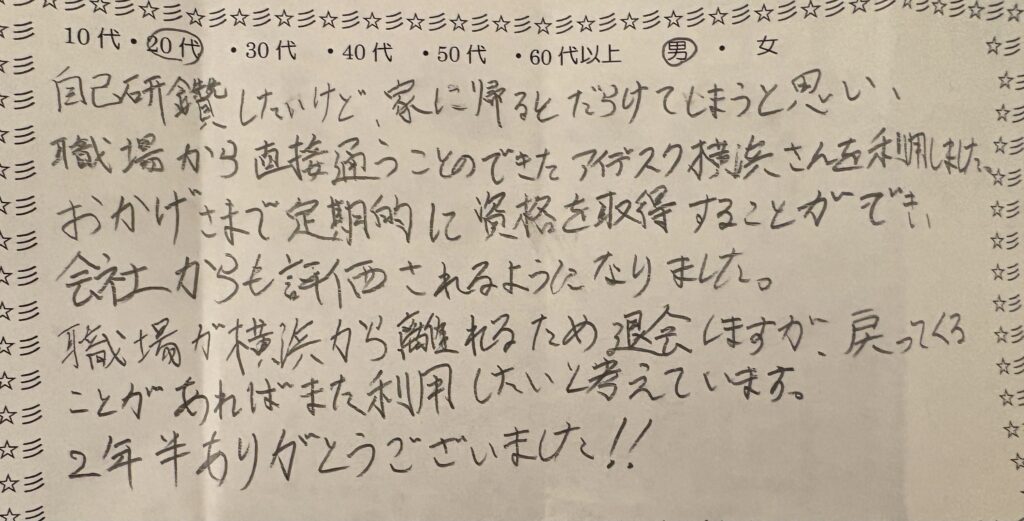 10代・20代・30代・40代・50代・60代以上 男・女
自己研鑽したいけど、家に帰るとだらけてしまうと思い、
職場から直接通うことのできたアイデスク横浜さんを利用しました。
おかげさまで定期的に資格を取得することができ、
会社からも評価されるようになりました。
職場が横浜から離れるため退会しますが、戻ってくる
ことがあればまた利用したいと考えています。
2年半ありがとうございました!!